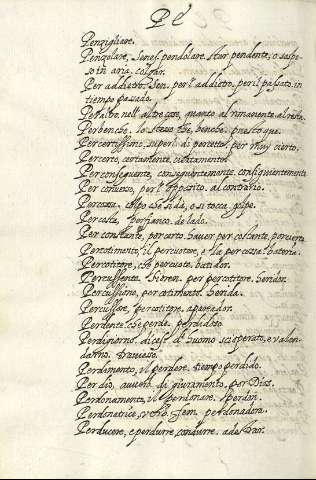 Pe
Penzigliare.
Penzolare, Senes. pendolare. star pendente, o sospe-
so in aria. colgar.
Per addietro. Sen. per l'addietro, per il passato. in
tiempo passado.
Peraltro nell'altre con, quanto al rimanente al resta.
Perbenche. lo stesso che, benche.
Percertissimo, superl. di percerto. per muy cierto.
Percerto, certamente.
Perconseguente, conseguentemente. consiguientemente
Per converso, per l'opposito. al contrario.
Percossa. colpo che si da, e si tocca. golpe.
Percosta. per fianco. de lado.
Per constante, per certo. hauer per costante.
Percotimento, il percuotere, e la percossa. bateria.
Percotitore, che percuote. batidor.
Percussente. Fioren. per percotitore. heridor.
Percussione, percotimento. herida.
Percussore, percotitore, aporreador.
Perdente. che perde. perdidoso.
Perdigiorno. dicesi d'huomo scioperato, e valen-
darno. traviesso.
Perdimento, il perdere. tiempo perdido.
Per dio, auverb. di giuramento, por Dios.
Perdonamento, il perdonare. perdon.
Perdonatrice, verb. fem. perdonadora.
Perducere, e perdurre, condurre.